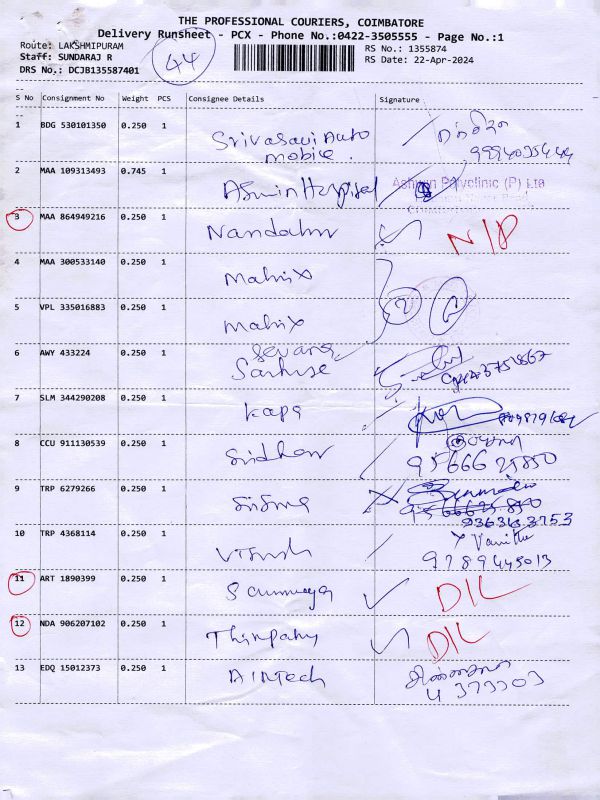 THE PROFESSIONAL COURIERS, COIMBATORE
Delivery Runsheet - PCX - Phone No.:0422-3505555 - Page No.:1
Route: LAKSHMIPURAM
Staff: SUNDARAJ R
DRS No.: DCJB135587401
44
RS No.: 1355874
RS Date: 22-Apr-2024
S No Consignment No Weight PCS Consignee Details Signature
1 BDG 530101350 0.250 1 Srivasavi Auto
mobile.
2 MAA 109313493 0.745 1 Aswin Hospital Ashwin Polyclinic (P) Ltd
3 MAA 864949216 0.250 1 N/P
4 MAA 300533140 0.250 1 Matrix
5 VPL 335016883 0.250 1 Matrix 2
6 AWY 433224 0.250 1
7 SLM 344290208 0.250 1 Kaps
8 CCU 911130539 0.250 1 Sridhar
95666 25850
9 TRP 6279266 0.250 1
10 TRP 4368114 0.250 1 Vanitha
9789445013
11 ART 1890399 0.250 1 D/L
12 NDA 906207102 0.250 1 D/L
13 EDQ 15012373 0.250 1 AINTech
373303